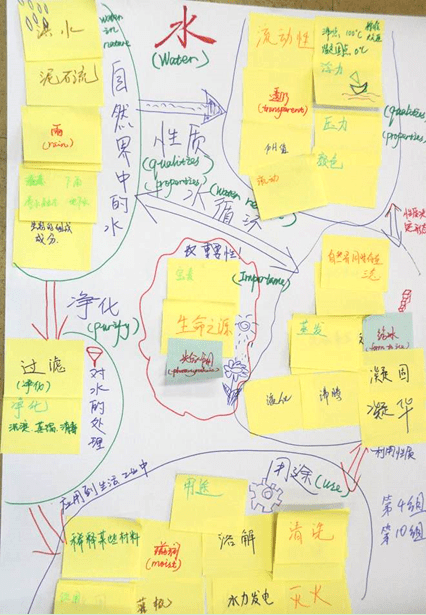 水
(Water)
洪水
(Water in nature)
泥石流
雨
(rain)
自然界中的水
性质
(qualities)
(properties)
水循环
流动性
沸点100℃
凝固点0℃
浮力
透明
(transparent)
压力
PH值
流动
(qualities)
(properties)
重要性!
(Importance)
生命之源
光合作用
(photosynthesis)
自然界间存在
三态
蒸发
结冰
(form to ice)
液化
沸腾
凝固
凝华
净化
(purify)
过滤
(净化)
净化
沉淀、蒸馏、消毒
对水的处理
利用性质
应用到生活工业中
用途(use)
用途
稀释某些材料
滋润
(moist)
溶解
清洗
水力发电
灭火
第4组
第10组